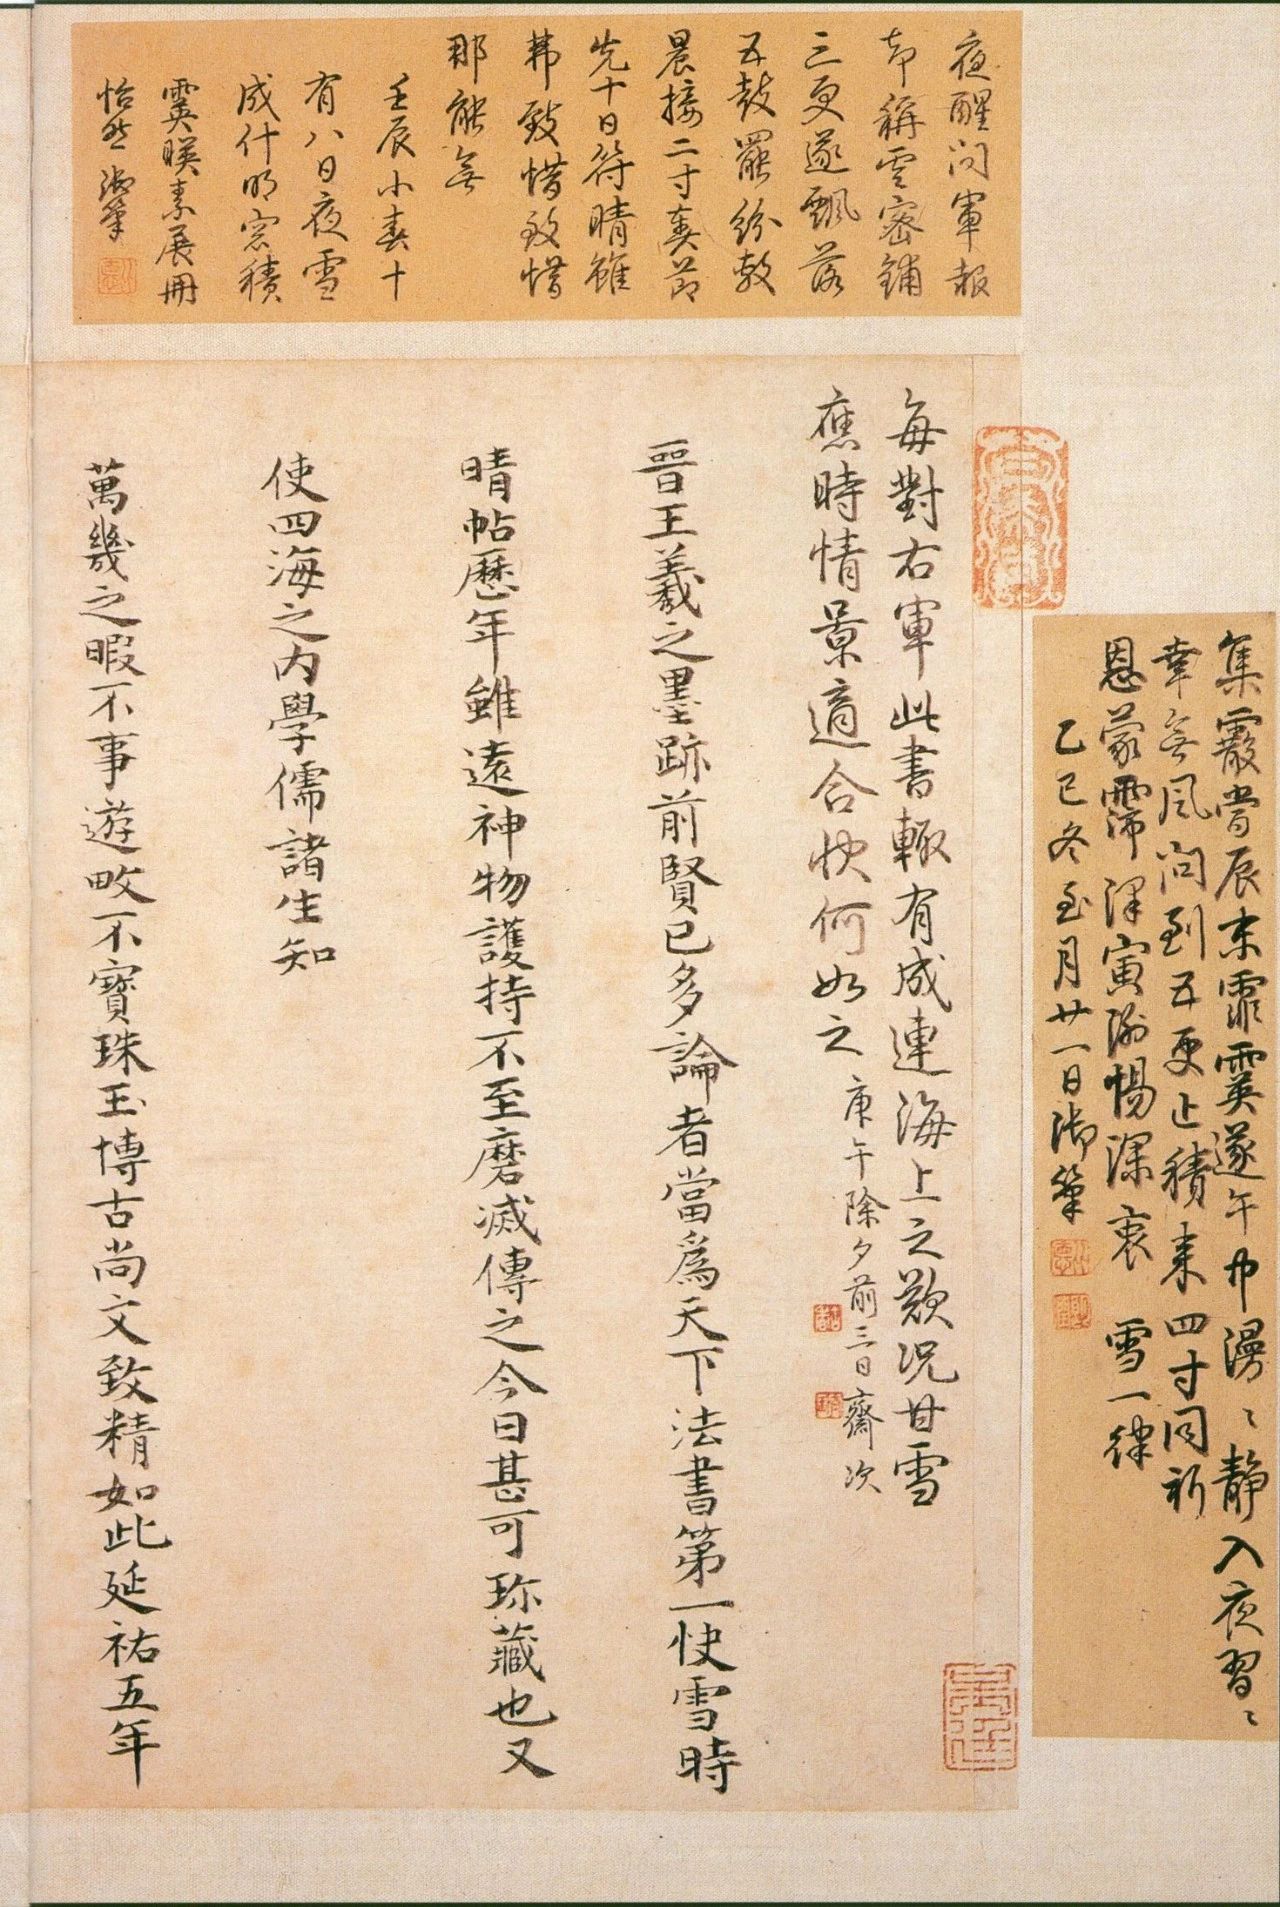 集霰當辰末霏霙遂午中漫〻靜入夜習〻
幸無風問到五更止積來四寸同祈
恩蒙霈澤寅謝惕深衷 雪一律
乙巳冬至月廿一日御筆
夜醒問軍報
却稱雲密鋪
三更遂飄落
五鼓罷紛敷
晨接二寸奏節
先十日符晴雖
弗致惜致惜
那能無
壬辰小春十
有八日夜雪
成什明窓積
霙暎素展冊
怡然御筆
每對右軍此書輙有成連海上之歎況甘雪
應時情景適合快何如之 庚午除夕前三日齋次
晉王羲之墨跡前賢已多論者當爲天下法書第一快雪時
晴帖歷年雖遠神物護持不至磨滅傳之今日甚可珎藏也又
使四海之內學儒諸生知
萬幾之暇不事遊畋不寶珠玉博古尚文致精如此延祐五年